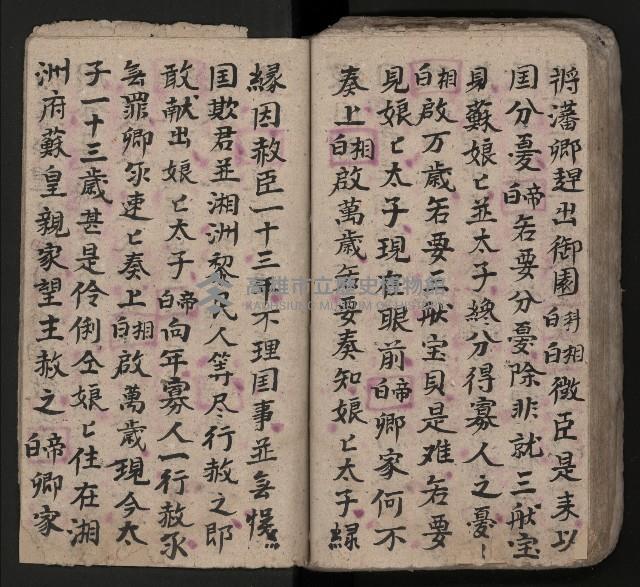 將潘卿趕出御園科白相白微臣是来以
囯分憂帝白若要分憂除非就三献宝
見蘇娘〻並太子纔分得寡人之憂
相白啟万歲若要三献宝貝是难若要
見娘〻太子現在眼前帝白卿家何不
奏上相白啟萬歲若要奏知娘〻太子緣
緣因赦臣一十三年不理囯事並無悞
囯欺君並湘洲黎民人等尽行赦之即
敢献出娘〻太子帝白向年寡人一行赦汞
無罪卿汞速〻奏上相白啟萬歲現今太
子一十三歲甚是伶俐仝娘〻住在湘
洲府蘇皇親家望主赦之帝白卿家
高雄市立歷史博物館
KAOHSIUNG MUSEUM OF HISTORY